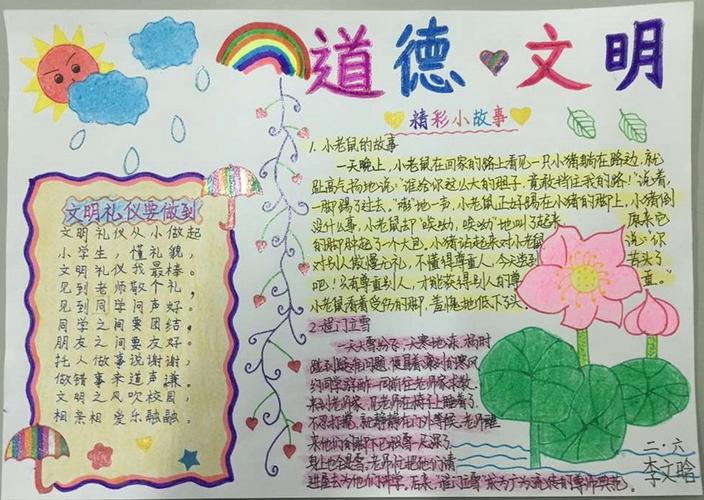 道德文明
精彩小故事
文明礼仪要做到
文明礼仪从小做起
小学生，懂礼貌，
文明礼仪我最棒。
见到老师敬个礼，
见到同学问声好。
同学之间要团结，
朋友之间要友好。
托人做事说谢谢，
做错事来道声谦。
文明之风吹校园，
相亲相爱乐融融。
1.小老鼠的故事
一天晚上，小老鼠在回家的路上看见一只小猪躺在路边，就
趾高气扬地说："谁给你这么大的胆子，竟敢挡住我的路！"说着，
一脚踢了过去。"嘭"地一声，小老鼠正好踢在小猪的脚上，小猪倒
没什么事，小老鼠却"哎呦，哎呦"地叫了起来，原来它
的脚肿起了一个大包，小猪站起来对小老鼠说："你
对别人傲慢无礼，不懂得尊重人，今天吃到苦头了
吧！只有尊重别人，才能获得别人的尊重。"
小老鼠看着受伤的脚，羞愧地低下了头。
2.程门立雪
一天大雪纷飞，天寒地冻，杨时
碰到疑难问题，便冒着凛冽的寒风
约同学游酢一同前往老师家求教，
来到老师家，见老师在椅子上睡着了，
不忍打搅，就静静地在外等候，老师醒
来他们的脚下已积雪一尺深了，
身上也是雪，老师忙把他们请
进屋去为他们讲学，后来，"程门立雪"成为广为流传的尊师典范。
二·六
李文晗